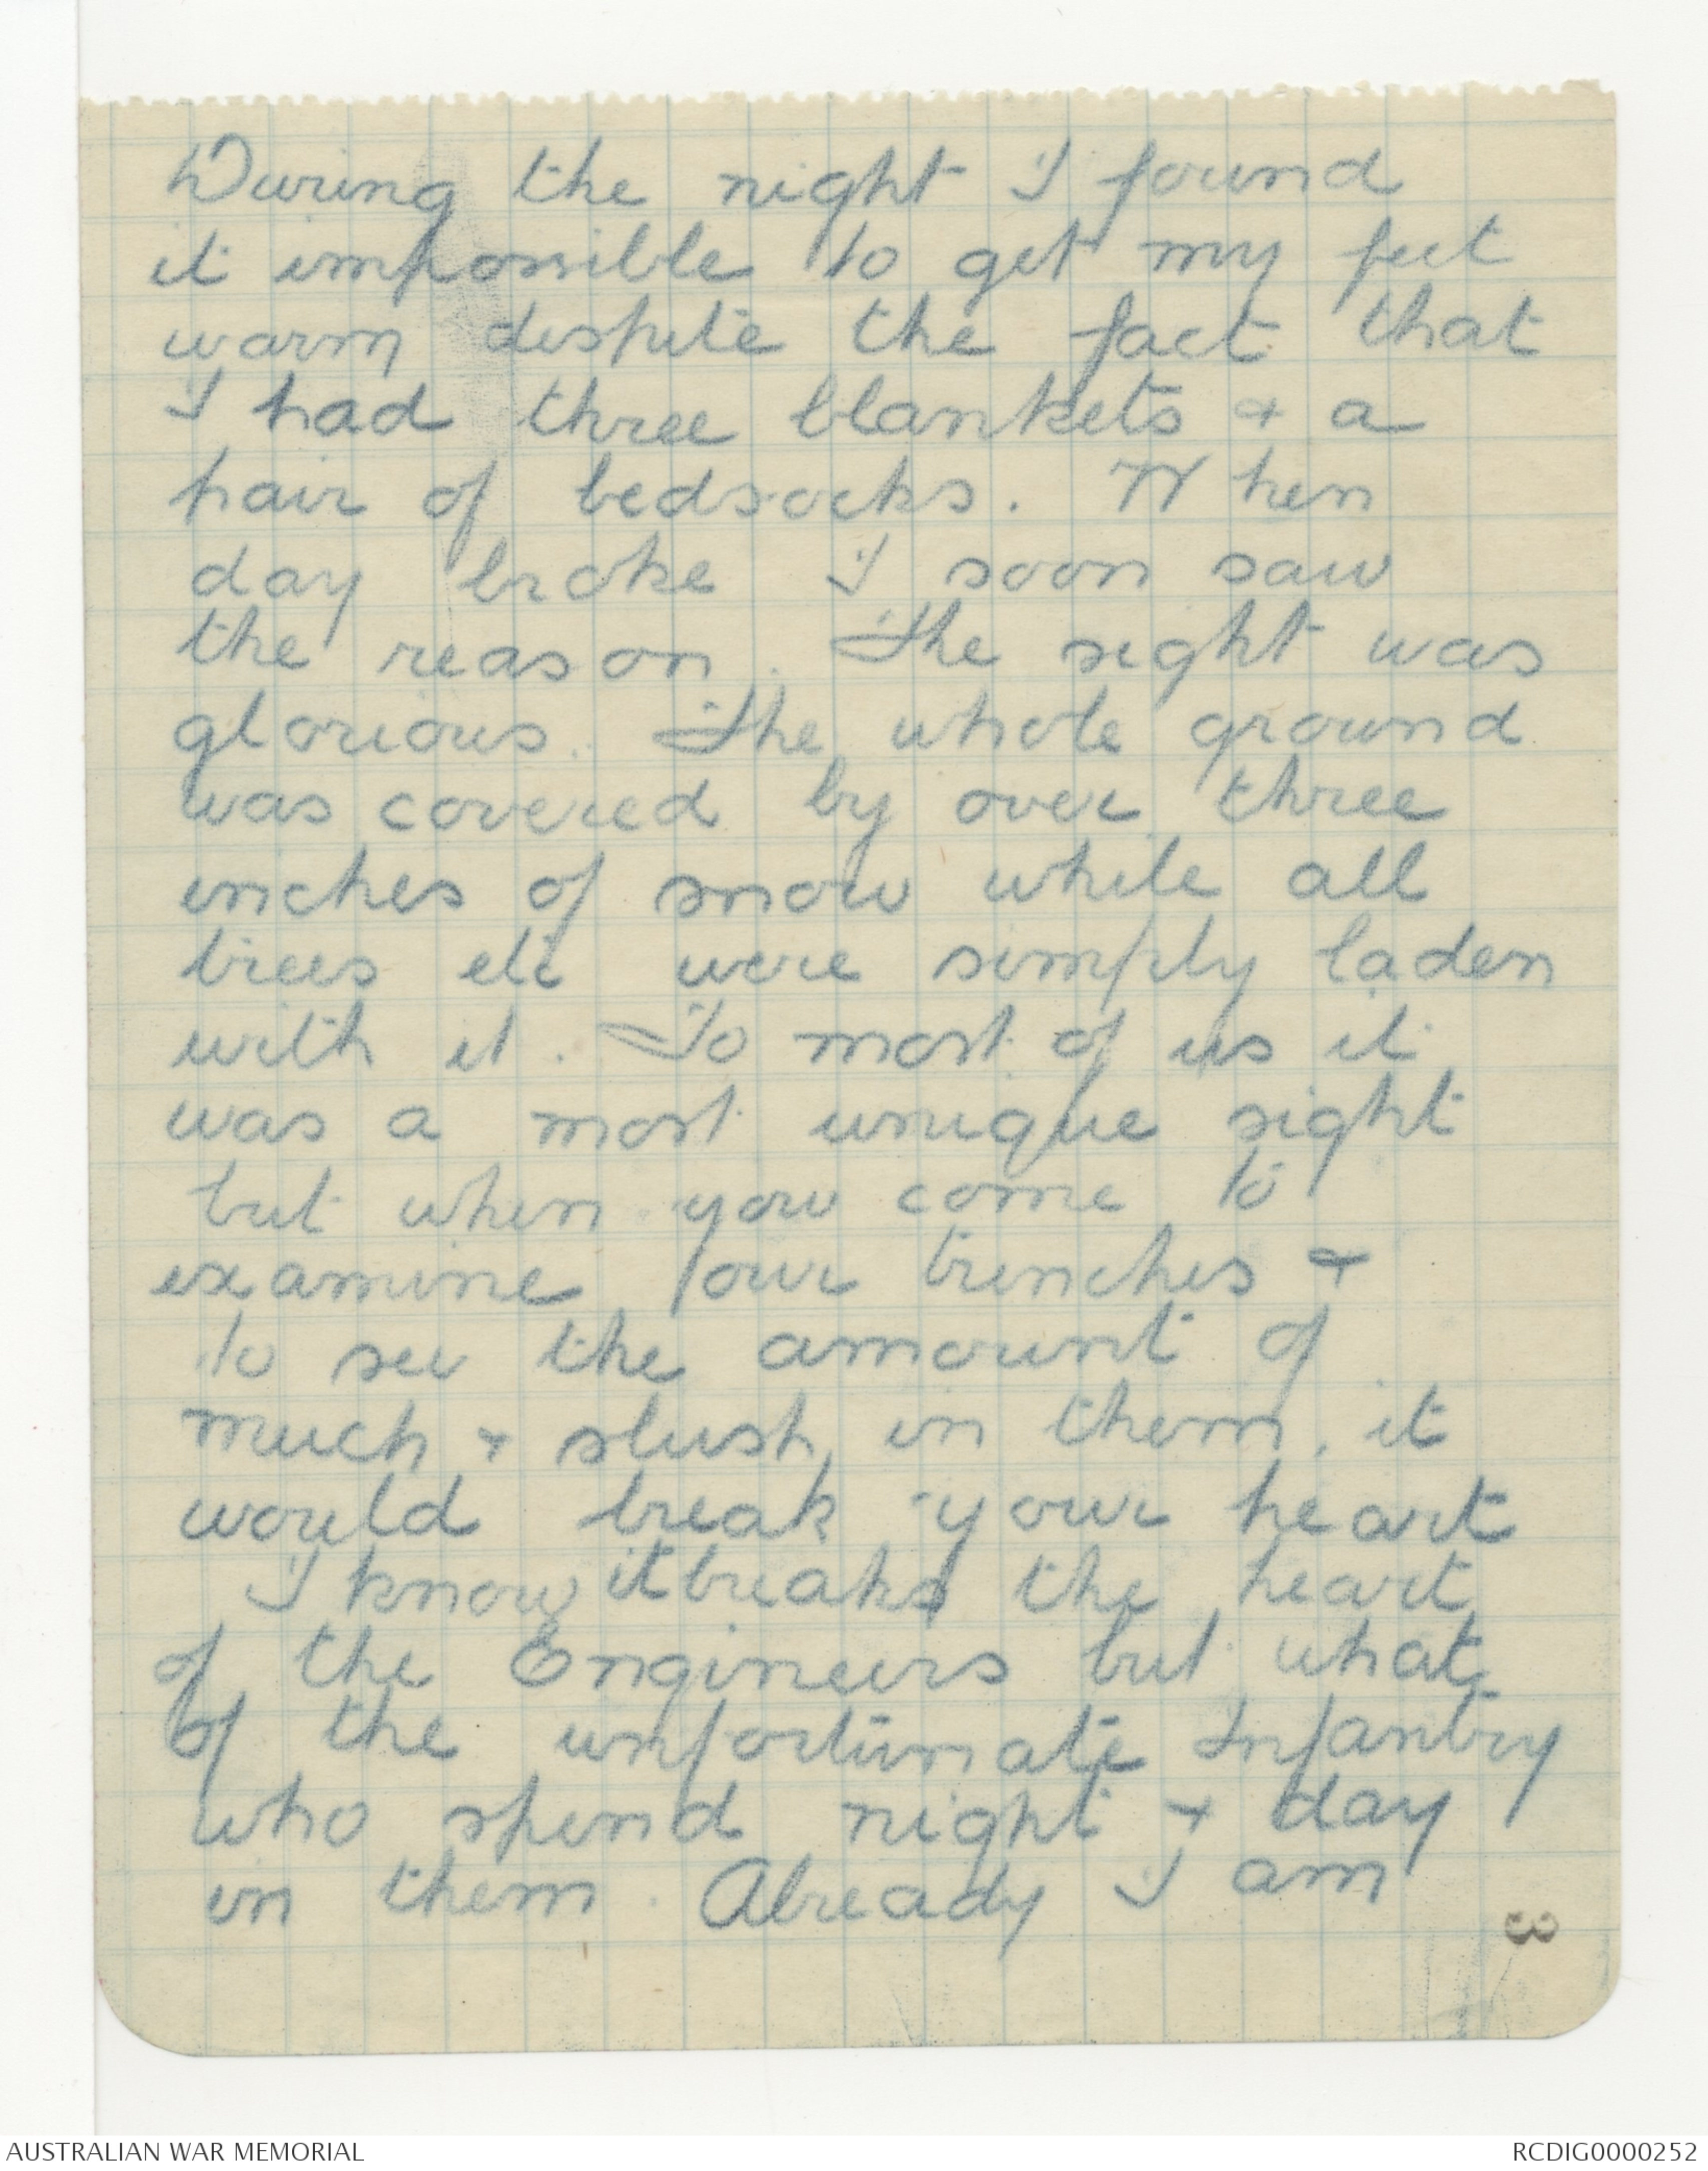 During the night I found
it impossible to get my feet
warm despite the fact that
I had three blankets & a
pair of bedsocks. When
day broke I soon saw
the reason. The sight was
glorious. The whole ground
was covered by over three
inches of snow while all
trees etc were simply laden
with it. To most of us it
was a most unique sight
but when you come to
examine our trenches &
to see the amount of
much & slush in them, it
would break your heart
I know it breaks the heart
of the Engineers but what
of the unfortunate Infantry
who spend night & day
in them. Already I am
3
AUSTRALIAN WAR MEMORIAL
RCDIG0000252